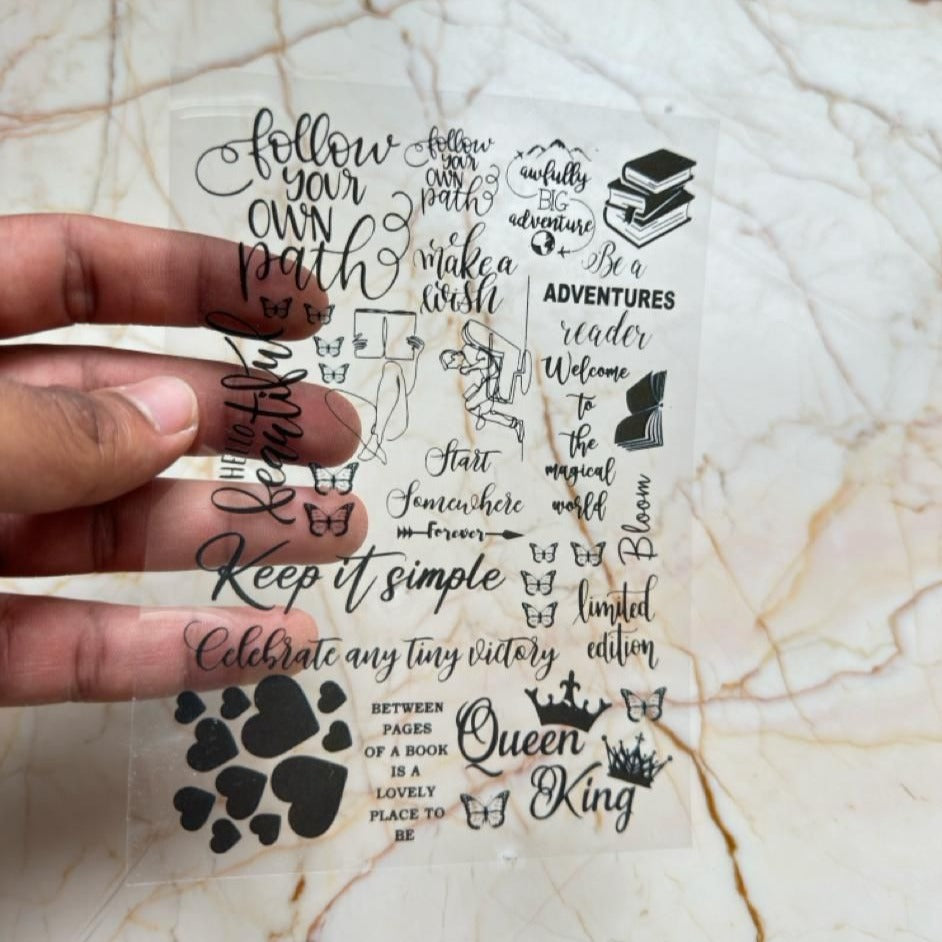 follow
your
OWN
path
follow
your
OWN
path
awfully
BIG
adventure
make a
wish
Be a
ADVENTURES
reader
HELLO
beautiful
Welcome
to
the
magical
world
Start
Somewhere
Forever
Bloom
Keep it simple
limited
edition
Celebrate any tiny victory
BETWEEN
PAGES
OF A BOOK
IS A
LOVELY
PLACE TO
BE
Queen
King